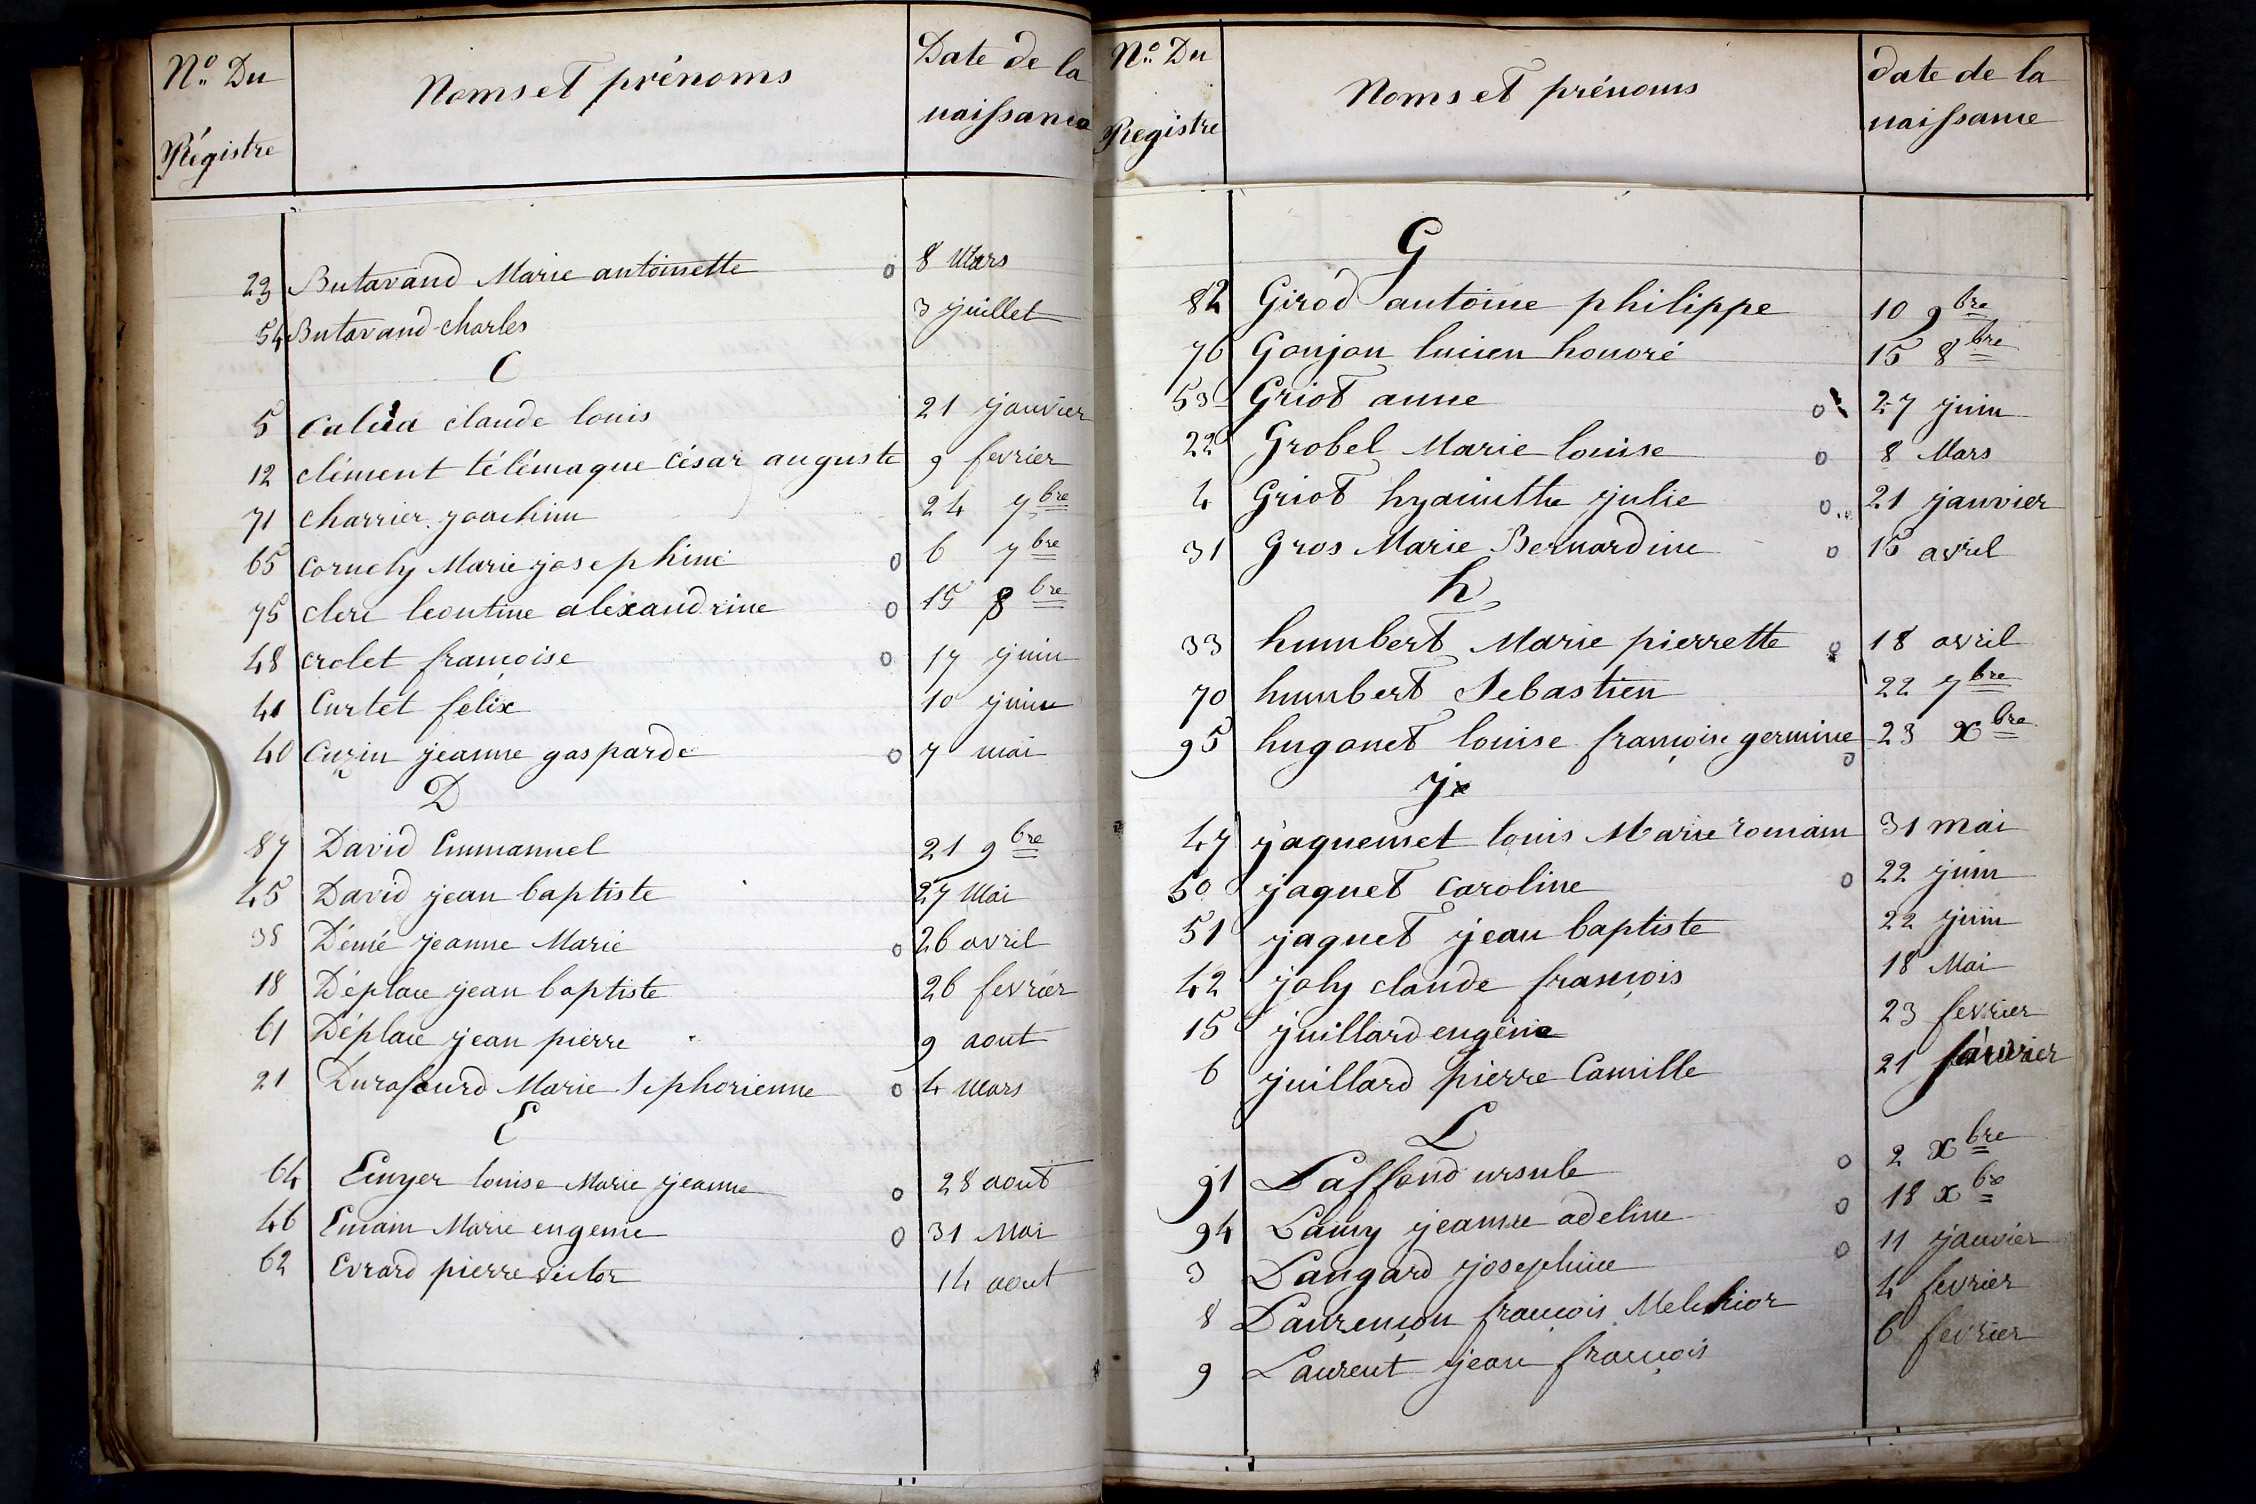 N.º Du Régistre Noms et prénoms Date de la naissance
23 Butavand Marie antoinette o 8 Mars
54 Butavand charles 3 juillet
C
5 claude louis 21 janvier
12 clément télémaque César auguste 9 fevrier
71 charrier joachim 24 7bre
65 Cornely Marie josephine o 6 7bre
75 clerc leontine alexandrine o 15 8bre
48 crolet françoise o 17 juin
41 Curtet felix 10 juin
40 Cuzin jeanne gasparde o 7 mai
D
87 David Emmanuel 21 9bre
45 David jean baptiste 27 Mai
38 Démé jeanne Marie o 26 avril
18 Déplace jean baptiste 26 fevrier
61 Déplace jean pierre 9 aout
21 Durafourd Marie Sephorienne o 4 Mars
E
64 louise Marie jeanne o 28 aout
46 Emain Marie eugenie o 31 Mai
62 Evrard pierre victor 14 aout
N.º Du Registre Noms et prénoms date de la naissance
G
82 Girod antoine philippe 10 9bre
76 Goujon lucien honoré 15 8bre
53 Griot anne o 27 juin
22 Grobel Marie louise o 8 Mars
4 Griot hyacinthe julie o 21 janvier
31 Gros Marie Bernardine o 15 avril
h
33 humbert Marie pierrette o 18 avril
70 humbert Sebastien 22 7bre
95 hugonet louise françoise germine o 23 xbre
j
47 jaquemet louis Marie romain 31 mai
50 jaquet Caroline o 22 juin
51 jaquet jean baptiste 22 juin
42 joly claude françois 18 Mai
15 juillard eugéne 23 fevrier
6 juillard pierre Camille 21
L
91 Laffond ursule o 2 xbre
94 Lamy jeanne adeline o 18 xbre
3 Langard josephine o 11 janvier
8 Laurençon françois Melchior 4 fevrier
9 Laurent jean françois 6 fevrier